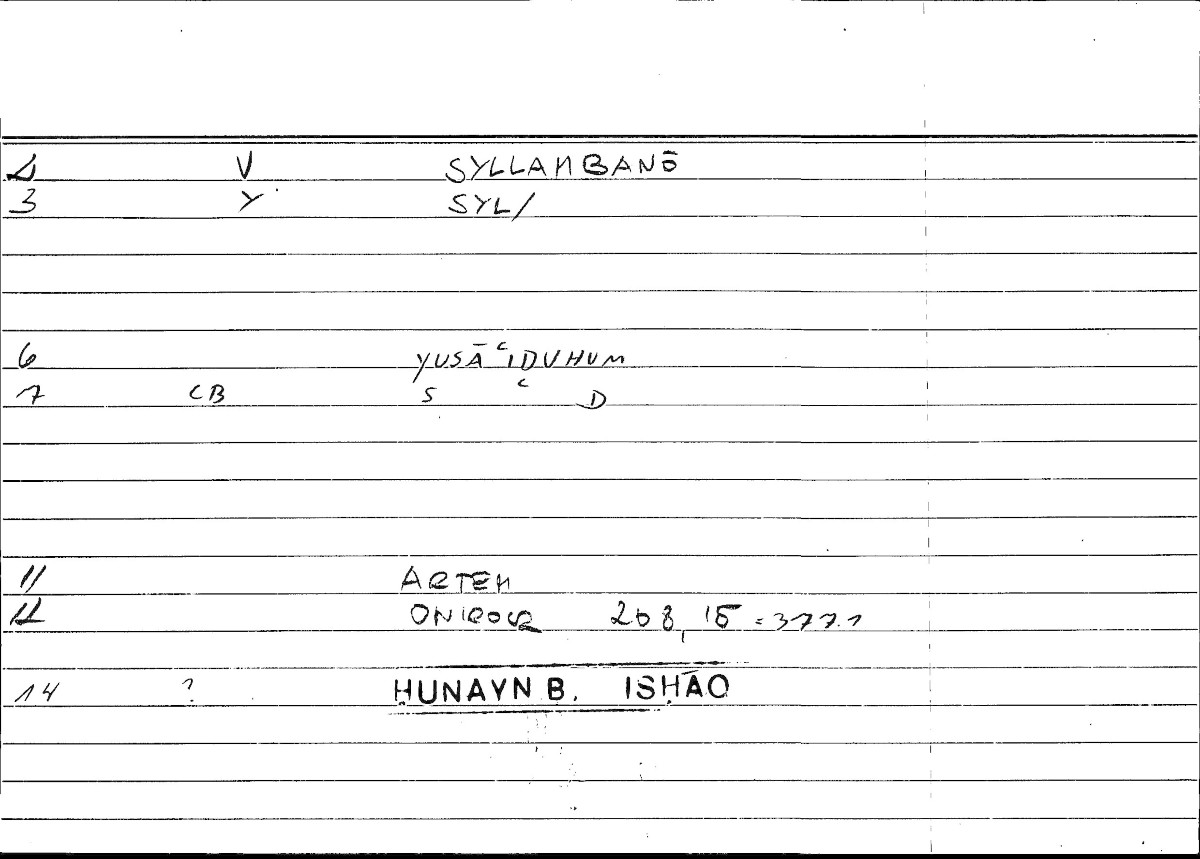 2 V SYLLAMBANŌ
3 Y SYL/
6 YUSĀʿIDUHUM
7 CB S ʿ D
11 ARTEM
12 ONIROCR 208,15 = 377.1
14 ? ḤUNAYN B. ISḤĀQ